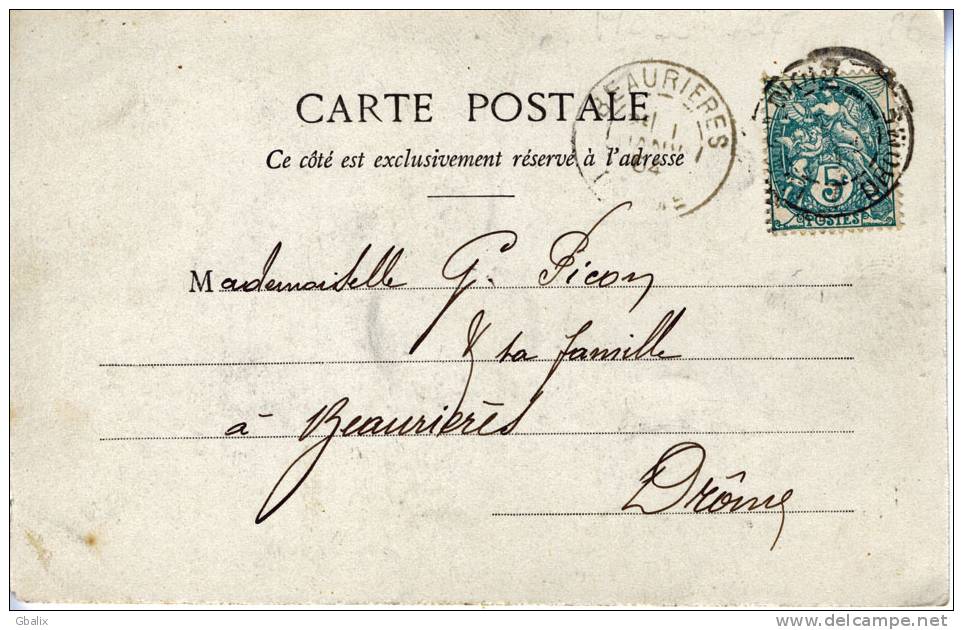 CARTE POSTALE
Ce côté est exclusivement réservé à l'adresse
BEAURIERES
1
JANV
04
DROME
5
POSTES
Mademoiselle G. Picon
& sa famille
à Beaurières
Drôme
Gbalix
delcampe.net